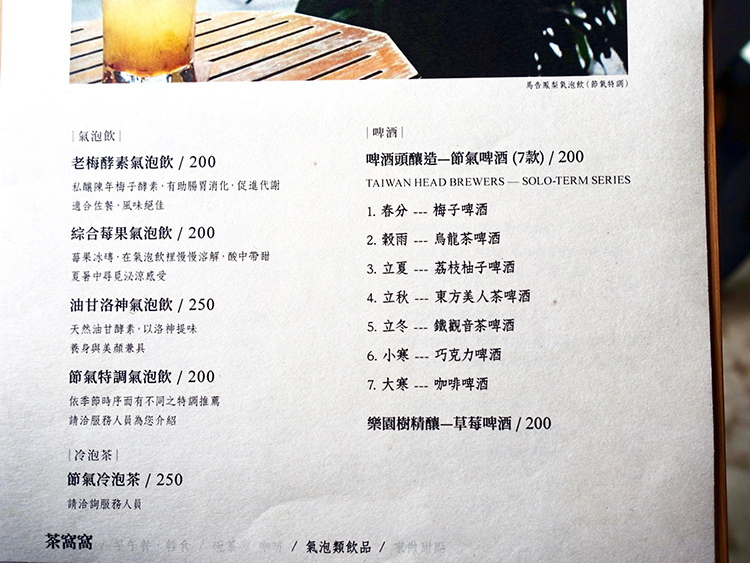 馬告鳳梨氣泡飲(節氣特調)
|氣泡飲|
老梅酵素氣泡飲 / 200
私釀陳年梅子酵素，有助腸胃消化，促進代謝
適合佐餐，風味絕佳
綜合莓果氣泡飲 / 200
莓果冰磚，在氣泡飲裡慢慢溶解，酸中帶甜
夏暑中尋覓沁涼感受
油甘洛神氣泡飲 / 250
天然油甘酵素，以洛神提味
養身與美顏兼具
節氣特調氣泡飲 / 200
依季節時序而有不同之特調推薦
請洽服務人員為您介紹
|冷泡茶|
節氣冷泡茶 / 250
請洽詢服務人員
|啤酒|
啤酒頭釀造—節氣啤酒 (7款) / 200
TAIWAN HEAD BREWERS — SOLO-TERM SERIES
1. 春分 --- 梅子啤酒
2. 穀雨 --- 烏龍茶啤酒
3. 立夏 --- 荔枝柚子啤酒
4. 立秋 --- 東方美人茶啤酒
5. 立冬 --- 鐵觀音茶啤酒
6. 小寒 --- 巧克力啤酒
7. 大寒 --- 咖啡啤酒
樂園樹精釀—草莓啤酒 / 200
茶窩窩 / 早午餐．輕食 / 咖啡 / 氣泡類飲品 / 甜點